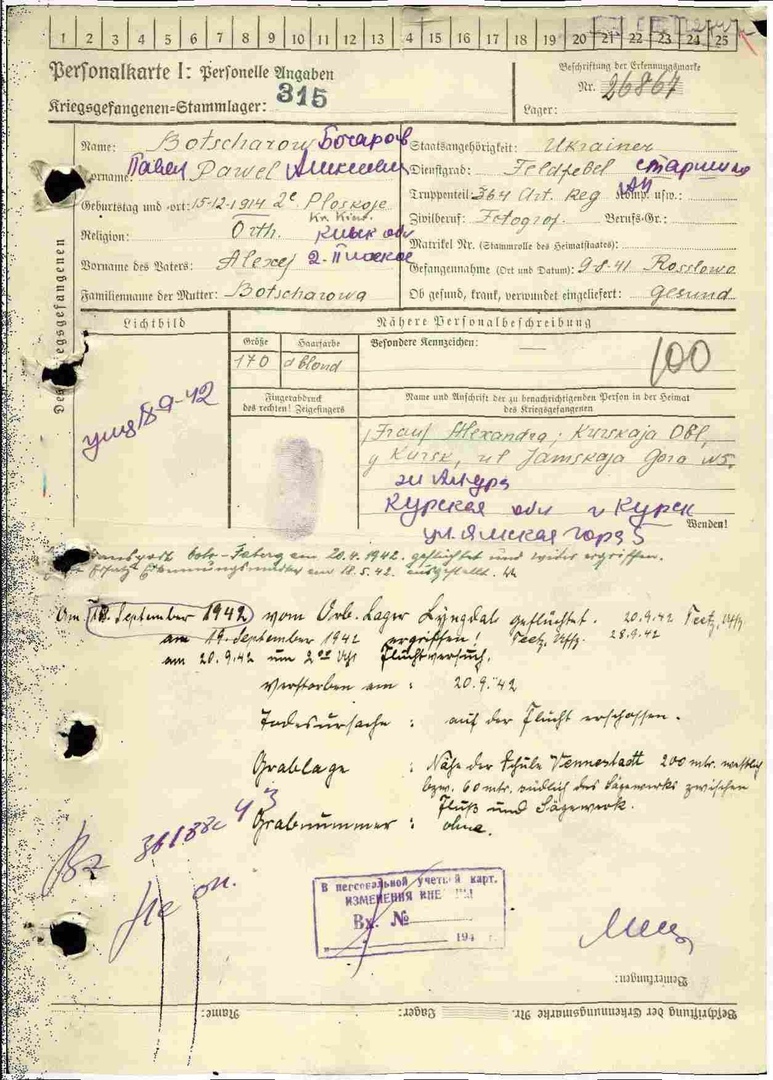 1 2 3 4 5 6 7 8 9 10 11 12 13 14 15 16 17 18 19 20 21 22 23 24 25
Personalkarte I: Personelle Angaben
Kriegsgefangenen=Stammlager: 315
Beschriftung der Erkennungsmarke
Nr. 26867
Lager:
Des Kriegsgefangenen
Name: Botscharow Бочаров
Vorname: Павел Pawel Алексеевич
Geburtstag und =ort: 15-12-1914 2e Ploskoje
Kr. Kiew.
Religion: Orth.
Vorname des Vaters: Alexej 2. Плоское
Familienname der Mutter: Botscharowa
Staatsangehörigkeit: Ukrainer
Dienstgrad: Feldfebel старшина
Truppenteil: 364 Art. Reg АП Komp. usw.:
Zivilberuf: Fotograf. Berufs-Gr.:
Matrikel Nr. (Stammrolle des Heimatstaates):
Gefangennahme (Ort und Datum): 9-8-41 Rosslowo
Ob gesund, krank, verwundet eingeliefert: gesund
Lichtbild
Nähere Personalbeschreibung
Größe
Haarfarbe
170
d blond
Besondere Kennzeichen: —
100
Fingerabdruck
des rechten! Zeigefingers
Name und Anschrift der zu benachrichtigenden Person in der Heimat
des Kriegsgefangenen
/Frau/ Alexandra; Kurskaja Obl,
g Kursk, ul Jamskaja Gora N5.
Курская обл г Курск
ул. Ямская гора 5
Wenden!
am 20.4.1942. geflüchtet und wieder ergriffen.
am 18.5.42. ausgestellt.
Am 18. September 1942 vom Arb. Lager Lyngdal geflüchtet. 20.9.42 Uffz.
am 19. September 1942 ergriffen! Uffz. 28.9.42
am 20.9.42 um 2⁰⁰ Uhr Fluchtversuch.
Verstorben am : 20.9.42
Todesursache : auf der Flucht erschossen.
Grablage : Nähe der Schule Vennestadt 200 mtr. westlich
bzw. 60 mtr. südlich des Sägewerks zwischen
Fluß und Sägewerk.
Grabnummer : ohne.
В персональной учетной карт.
ИЗМЕНЕНИЯ ВНЕ
Вх. №
194 г.
Bemerkungen:
Beschriftung der Erkennungsmarke Nr.
Lager:
Name: